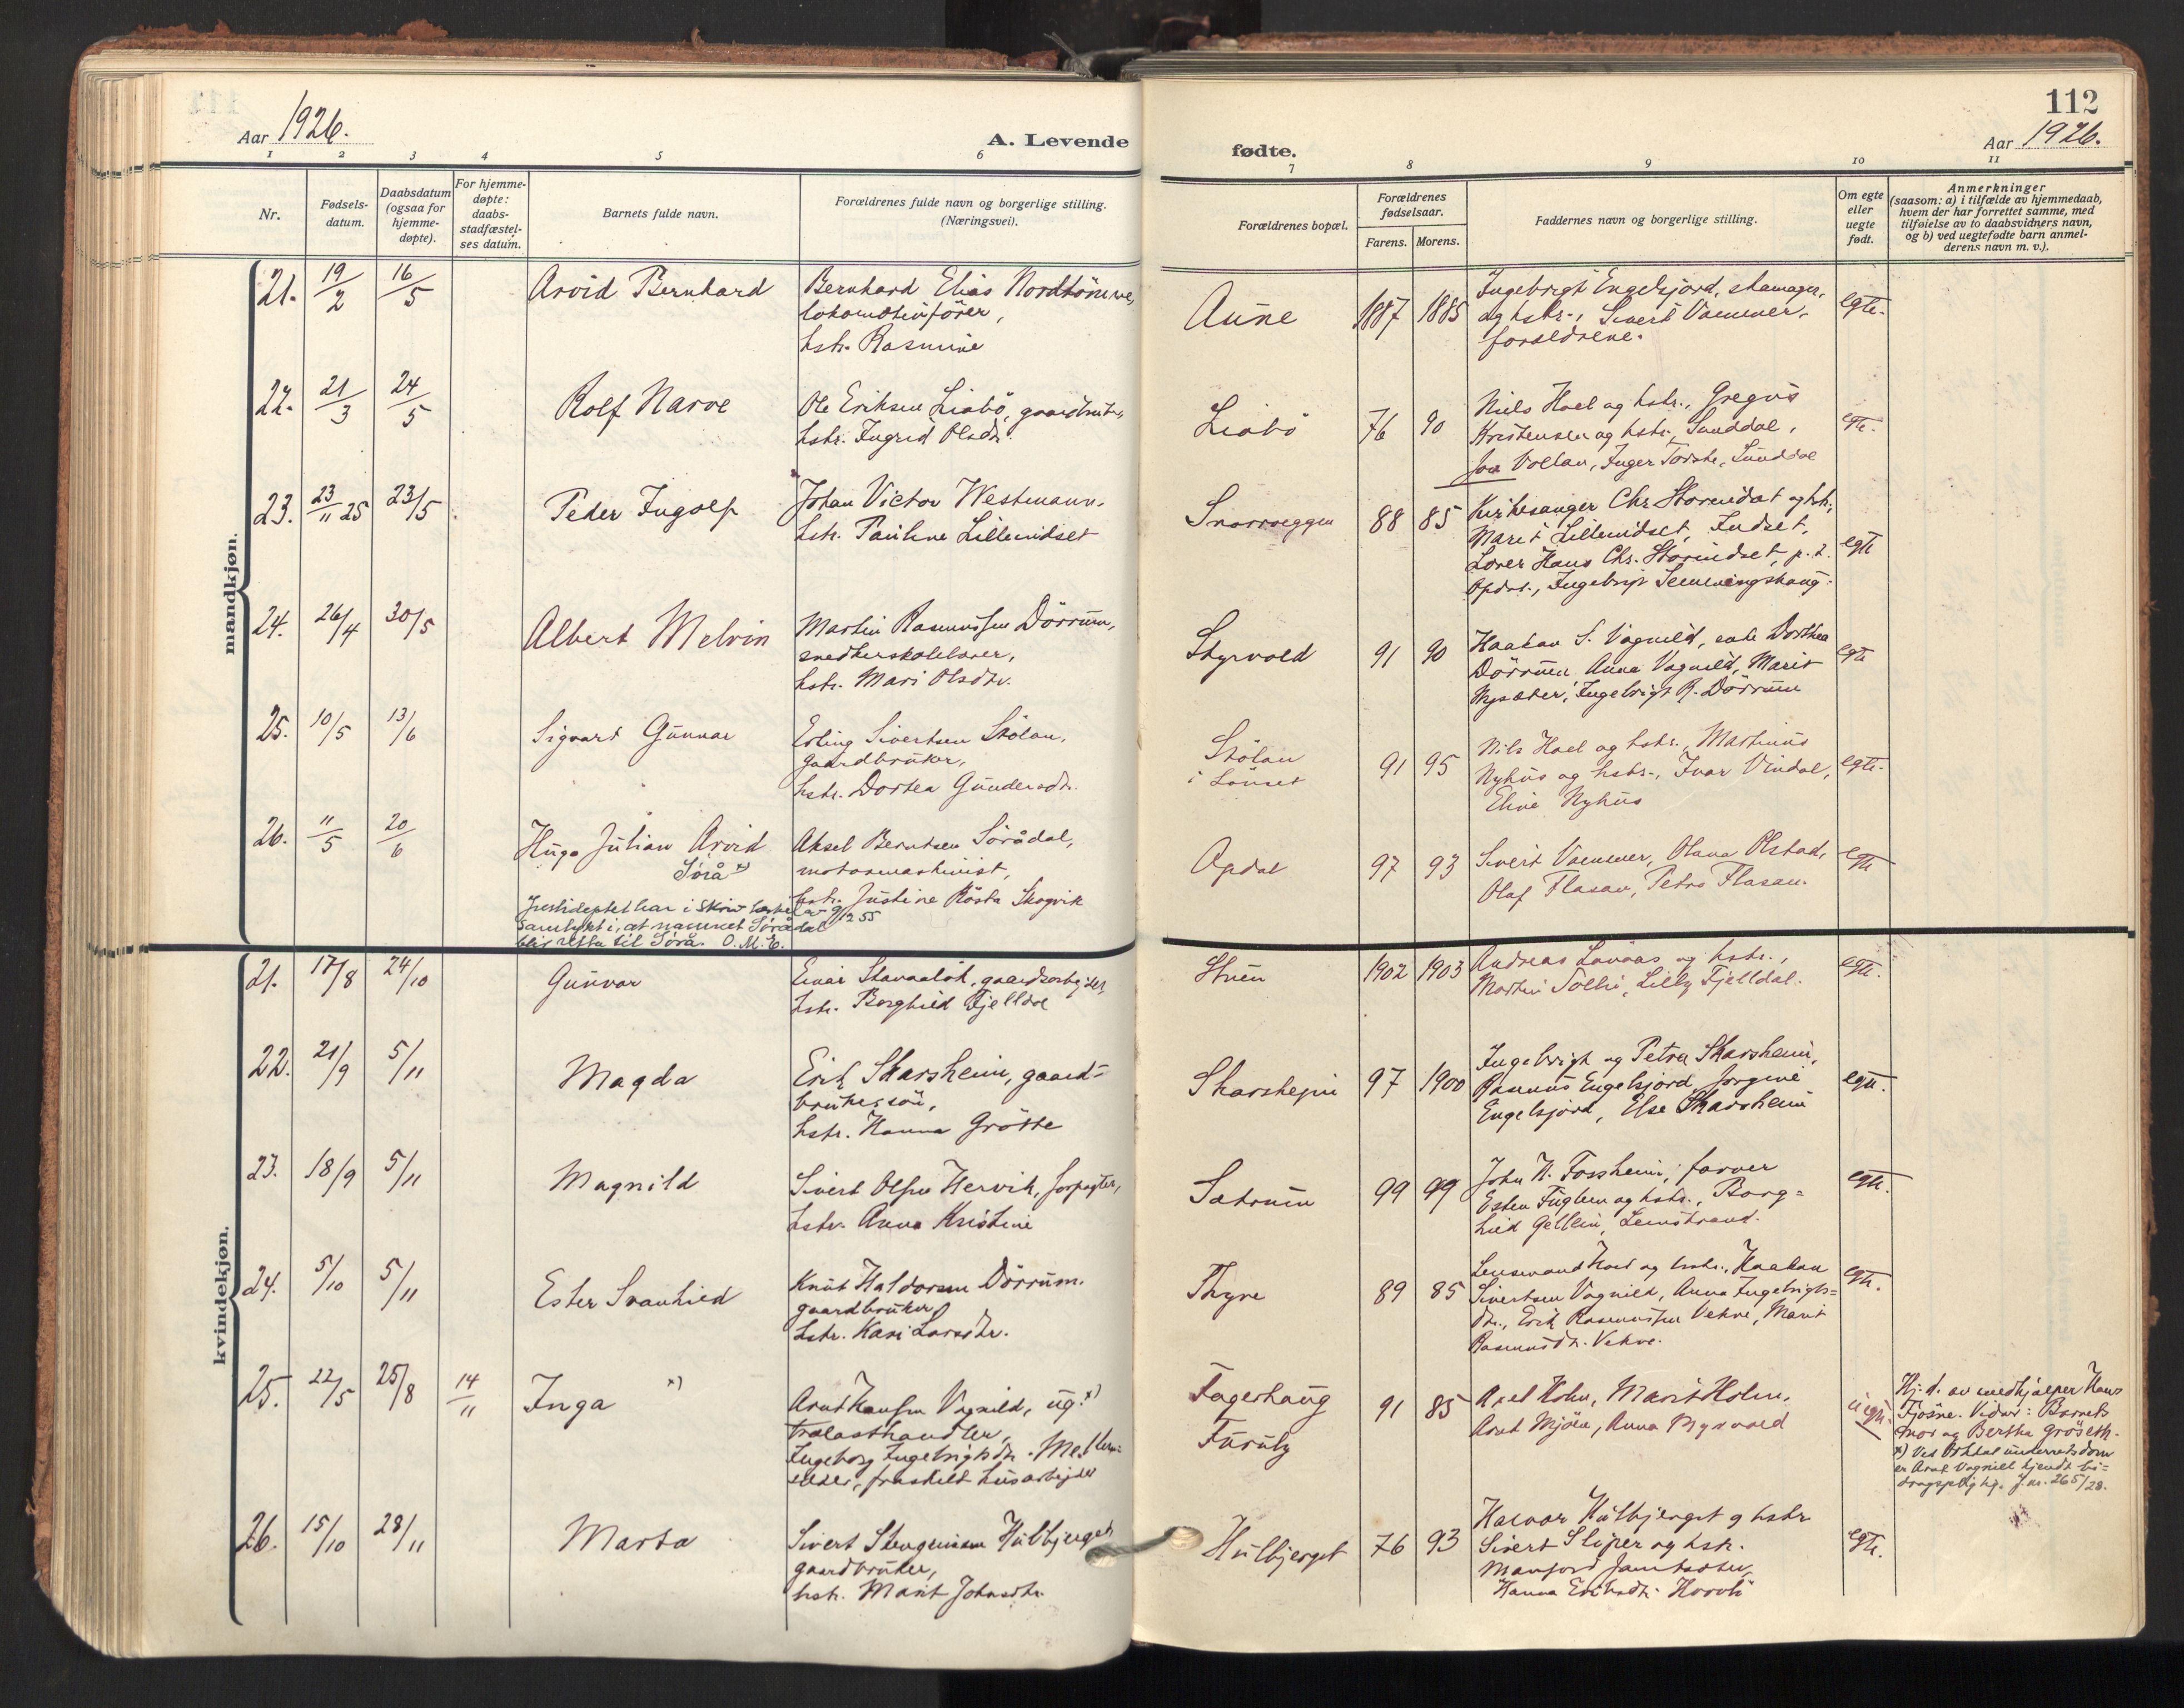 112
Aar 1926.
A. Levende
fødte.
Aar 1926.
1 2 3 4 5 6 7 8 9 10 11
Nr.
Fødsels-
datum.
Daabsdatum
(ogsaa for
hjemme-
døpte).
For hjemme-
døpte:
daabs-
stadfæstel-
ses datum.
Barnets fulde navn.
Forældrenes fulde navn og borgerlige stilling.
(Næringsvei).
Forældrenes bopæl.
Forældrenes
fødselsaar.
Farens. Morens.
Faddernes navn og borgerlige stilling.
Om egte
eller
uegte
født.
Anmerkninger
(saasom: a) i tilfælde av hjemmedaab,
hvem der har forrettet samme, med
tilføielse av to daabsvidners navn,
og b) ved uegtefødte barn anmel-
derens navn m. v.).
mandkjøn.
21. 19/2 16/5 Arvid Bernhard
Bernhard Elias Nordtömme,
lokomotivförer,
hstr. Rasmine
Aune 1887 1885
Ingebrigt Engelsjord, skomager,
og hstr., Sivert Vammer,
forældrene.
egte.
22. 21/3 24/5 Rolf Narve
Ole Eriksen Liabö, gaardbruker,
hstr. Ingrid Olsdtr.
Liabö 76 90
Niels Hoel og hstr., Gregus
Kristensen og hstr., Sunddal,
Vollan, Inger Sunddal
egte.
23. 23/11 25 23/5 Peder Ingolf
Johan Victor Westmann.
hstr. Pauline Lilleindset
Snorroeggen 88 85
Kirkesanger Chr. Storindset og hstr.,
Marit Lilleindset, Indset,
Lærer Hans Chr. Storindset, p. t.
Opdal, Ingebrigt Semmingshaug.
egte
24. 26/4 30/5 Albert Melvin
Martin Rasmussen Dörrum,
snedkerskolelærer,
hstr. Mari Olsdtr.
Styrvold 91 90
Haakon S. Vognild, enke Dorthea
Dörrum, Anna Vognild, Marit
Nysæter, Ingebrigt R. Dörrum
egte
25. 10/5 13/6 Sigvart Gunnar
Erling Sivertsen Stölan,
gaardbruker,
hstr. Dortea Gundersdtr.
Stölan
i Lönset
91 95
Nils Hoel og hstr., Martinus
Nyhus og hstr., Ivar Vindal,
Eline Nyhus
egte.
26. 11/5 20/6 Hugo Julian Arvid
Sörå x)
Aksel Berntsen Sörådal,
motormaskinist,
hstr. Justine Rösta Skogvik
Justisdeptet har i skriv av 9/12 55
samtykt i, at namnet Sörådal
blir retta til Sörå. O. M. E.
Opdal 97 93
Sivert Vammer, Olava Olstad,
Olaf Flasan, Petra Flasan.
egte
kvindekjøn.
21. 17/8 24/10 Gunvor
Einar Stavaalök, gaardsarbejder,
hstr. Borghild Fjelldal
Stuen 1902 1903
Andreas Lövaas og hstr.,
Martin Solli, Lilly Fjelldal.
egte.
22. 21/9 5/11 Magda
Erik Skarsheim, gaard=
brukersön,
hstr. Hanna Grötte
Skarsheim 97 1900
Ingebrigt og Petra Skarsheim,
Rasmus Engelsjord, Jorgine
Engelsjord, Else Skarsheim
egte.
23. 18/9 5/11 Magnild
Sivert Olsen Hervik, forpagter,
hstr. Anna Kristine
Sætrum 99 99
John H. Fossheim, farver
Esten Fuglem og hstr., Borg=
hild Gellein, Leinstrand.
egte.
24. 5/10 5/11 Ester Svanhild
Knut Haldorsen Dörrum.
gaardbruker,
hstr. Kari Larsdtr.
Thyve 89 85
Lensmand Hoel og hstr., Haakon
Sivertsen Vognild, Anna Ingebrigts=
dtr., Erik Rasmussen Vekve, Marit
Rasmusdtr. Vekve.
egte.
25. 22/5 25/8 14/11 Inga x)
Arnt Hansen Vognild, ug. x)
trælasthandler,
Ingeborg Ingebrigtsdtr. Mellem=
sæter, fraskilt husarbejder
Fagerhaug
Furuly
91 85
Axel Holm, Marit Holm,
Arnt Mjöen, Anna Mysvold
uegte.
Hj. d. av medhjælper Hans
Fjösne. Vidner: Barnets
mor og Bertha Gröseth.
x) Ved Orkdal underretsdom
er Arnt Vognild kjendt bi=
dragspligtig. J. nr. 265/28.
26. 15/10 28/11 Marta
Sivert Hulbjerget,
gaardbruker,
hstr. Marit Johnsdtr.
Hulbjerget 76 93
Halvor Hulbjerget og hstr.
Sivert Sliper og hstr.
Hanna Eriksdtr. Horvli
egte.